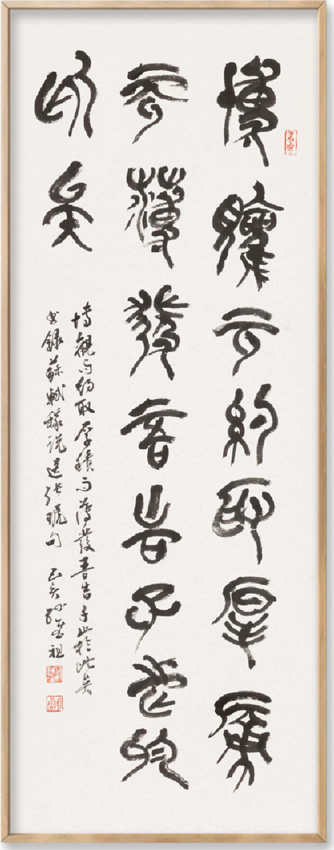 博觀而約取厚積
而薄發吾告子止於
此矣
博觀而約取厚積而薄發吾告子止於此矣
書錄蘇軾稼說送張琥句 己亥 祖